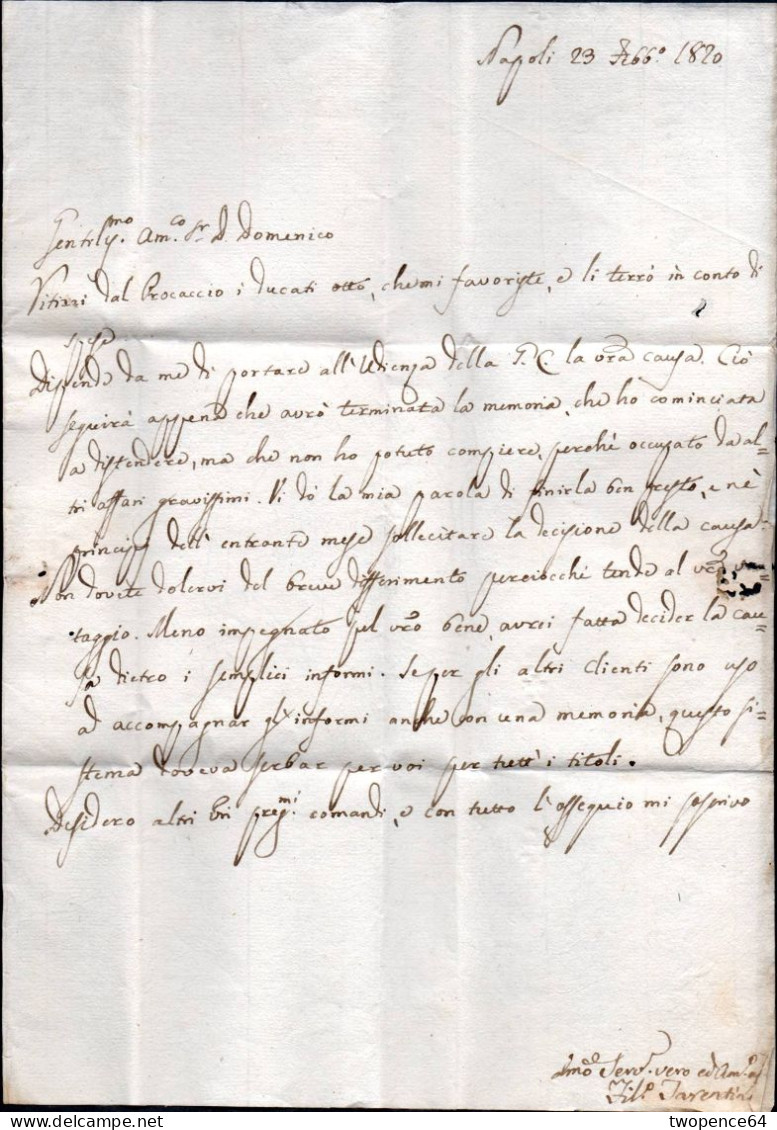 Napoli 23 Febb.º 1820
Gentilis.mo Am.co Sr D. Domenico
Ritirai dal Procaccio i ducati otto, che mi favoriste, e li terrò in conto di
spese.
Dipende da me di portare all'Udienza della G. C. la vrã causa. Ciò
seguirà appena che avrò terminata la memoria, che hò cominciata
a distendere, ma che non ho potuto compiere, perchè occupato da al=
tri affari gravissimi. Vi dò la mia parola di finirla ben presto, e nè
principj dell'entrante mese sollecitare la decisione della causa.
Non dovete dolervi del breve differimento perciocchè tende al vrõ van=
taggio. Meno impegnato pel vrõ bene, avrei fatta decider la cau=
sa dietro i semplici informi. Se per gli altri Clienti sono uso
ad accompagnar gl'informi anche con una memoria, questo si=
stema doveva serbar per voi per tutt'i titoli.
Desidero altri vri preg.mi comandi, e con tutto l'ossequio mi soscrivo
Serv.e vero ed Am.co
Fil.º Tarentini
twopence64